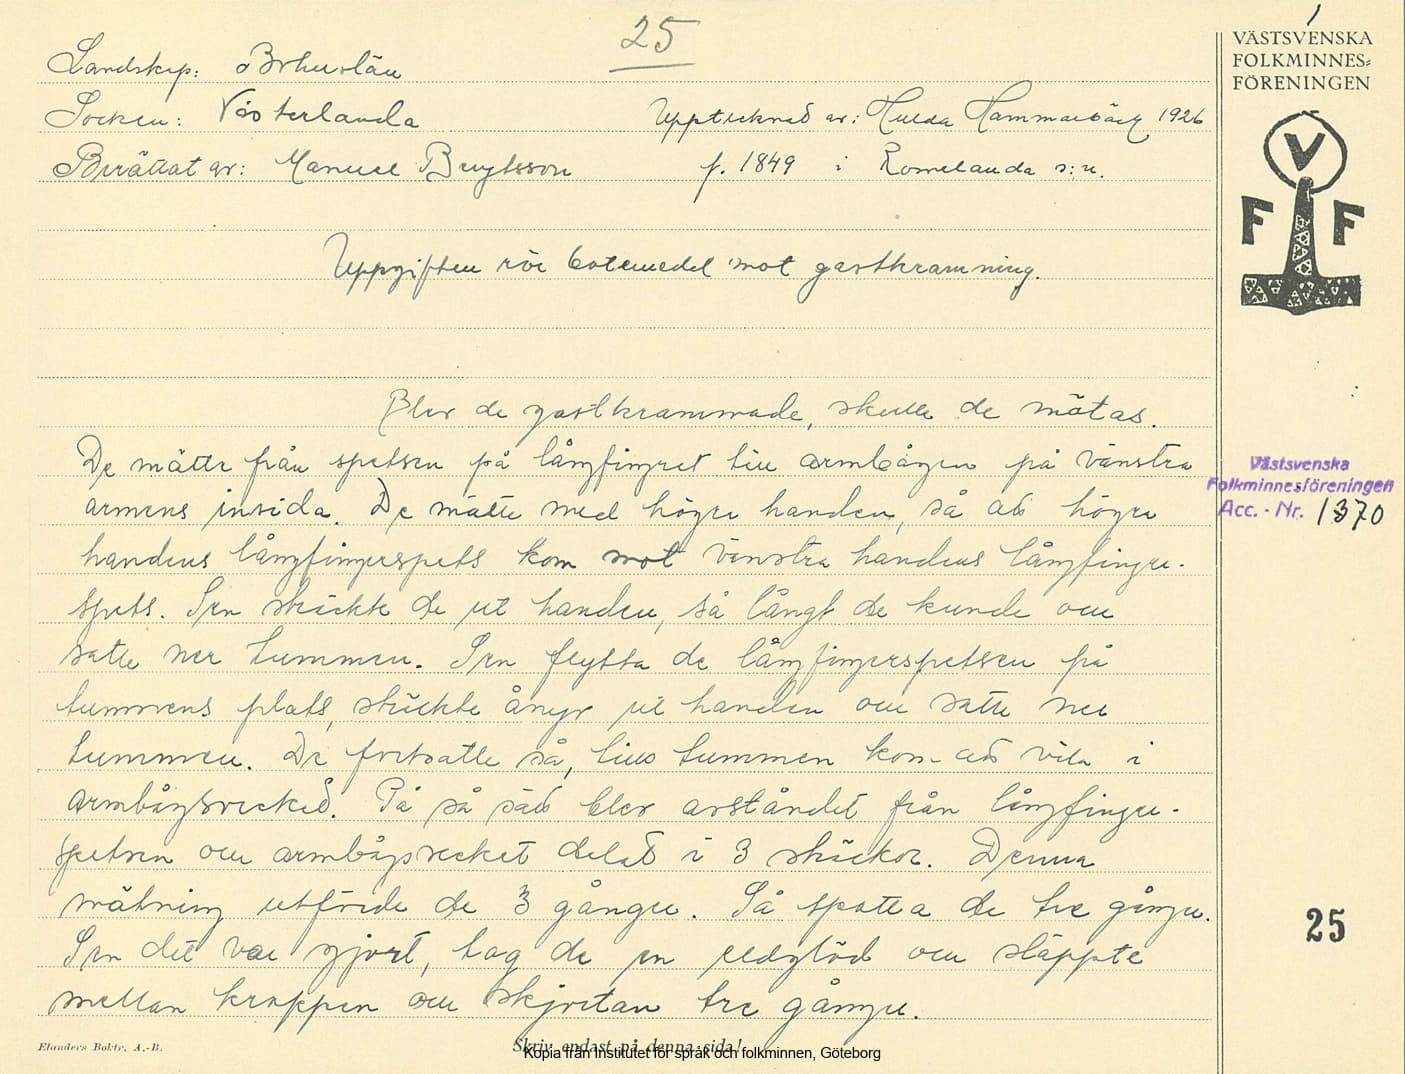 25
1
VÄSTSVENSKA
FOLKMINNES=
FÖRENINGEN
V
F F
Landskap: Bohuslän
Socken: Västerlanda Upptecknad av: Hulda Hammarbäck 1926
Berättat av: Manuel Bengtsson f. 1849 i Romelanda s:n.
Uppgiften rör botemedel mot gastkramning.
Blev de gastkrammade, skulle de mätas.
De mätte från spetsen på långfingret till armbågen på vänstra
armens insida. De mätte med högra handen, så att högra
handens långfingerspets kom mot vänstra handens långfinger-
spets. Sen sträckte de ut handen, så långt de kunde och
satte ner tummen. Sen flytta de långfingerspetsen på
tummens plats, sträckte ånyo ut handen och satte ner
tummen. De fortsatte så, tills tummen kom att vila i
armbågsvecket. På så sätt blev avståndet från långfinger-
spetsen och armbågsvecket delat i 3 sträckor. Denna
mätning utförde de 3 gånger. Så spotta de tre gånger.
Sen det var gjort, tog de en eldglöd och släppte
mellan kroppen och skjortan tre gånger.
Västsvenska
Folkminnesföreningen
Acc. - Nr. 1370
25
Elanders Boktr. A.-B.
Skriv endast på denna sida!
Kopia från Institutet för språk och folkminnen, Göteborg